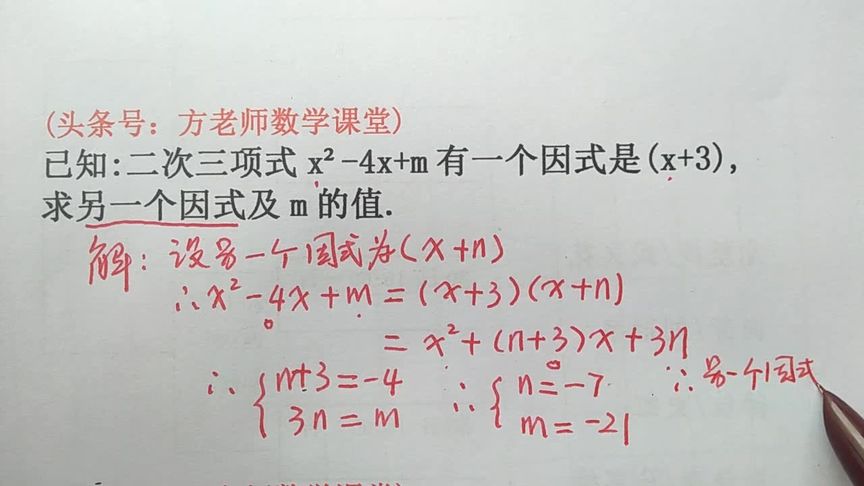 (头条号：方老师数学课堂)
已知:二次三项式 x²-4x+m 有一个因式是(x+3),
求另一个因式及 m 的值.
解：设另一个因式为(x+n)
∴x²-4x+m=(x+3)(x+n)
=x²+(n+3)x+3n
∴{n+3=-4 ∴{n=-7 ∴另一个因式
3n=m m=-21